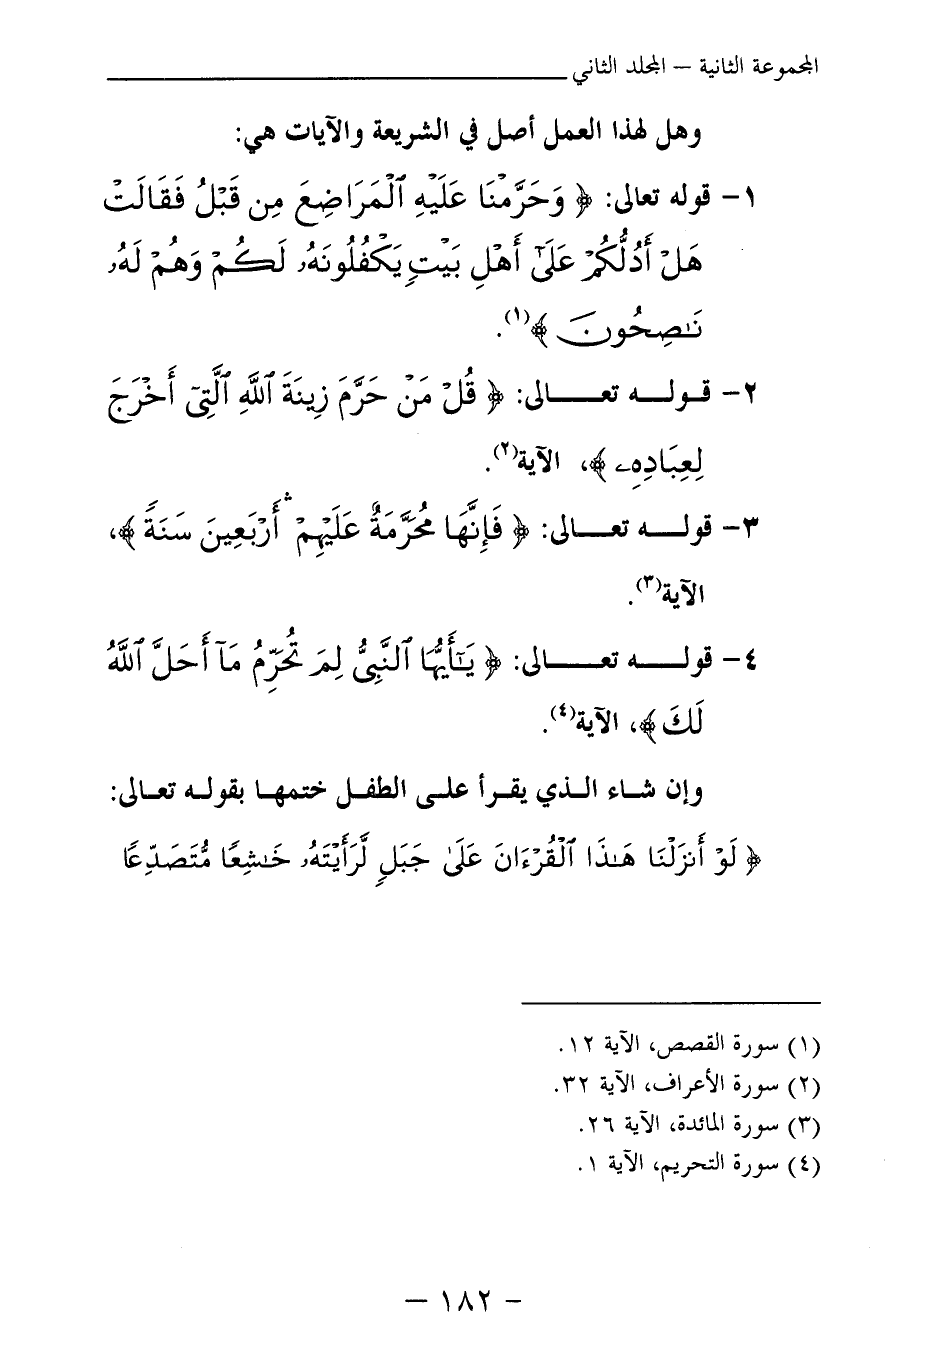 المجموعة الثانية – المجلد الثاني
وهل لهذا العمل أصل في الشريعة والآيات هي:
١- قوله تعالى: ﴿ وَحَرَّمْنَا عَلَيْهِ ٱلْمَرَاضِعَ مِن قَبْلُ فَقَالَتْ
هَلْ أَدُلُّكُمْ عَلَىٰٓ أَهْلِ بَيْتٍ يَكْفُلُونَهُۥ لَكُمْ وَهُمْ لَهُۥ
نَـٰصِحُونَ ﴾(١).
٢- قوله تعالى: ﴿ قُلْ مَنْ حَرَّمَ زِينَةَ ٱللَّهِ ٱلَّتِىٓ أَخْرَجَ
لِعِبَادِهِۦ ﴾، الآية(٢).
٣- قوله تعالى: ﴿ فَإِنَّهَا مُحَرَّمَةٌ عَلَيْهِمْ ۛ أَرْبَعِينَ سَنَةً ﴾،
الآية(٣).
٤- قوله تعالى: ﴿ يَـٰٓأَيُّهَا ٱلنَّبِىُّ لِمَ تُحَرِّمُ مَآ أَحَلَّ ٱللَّهُ
لَكَ ﴾، الآية(٤).
وإن شاء الذي يقرأ على الطفل ختمها بقوله تعالى:
﴿ لَوْ أَنزَلْنَا هَـٰذَا ٱلْقُرْءَانَ عَلَىٰ جَبَلٍ لَّرَأَيْتَهُۥ خَـٰشِعًا مُّتَصَدِّعًا
(١) سورة القصص، الآية ١٢.
(٢) سورة الأعراف، الآية ٣٢.
(٣) سورة المائدة، الآية ٢٦.
(٤) سورة التحريم، الآية ١.
– ١٨٢ –